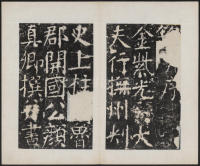 序
金紫光祿大
夫行撫州刺
史上柱國魯
郡開國公顏
真卿撰并書